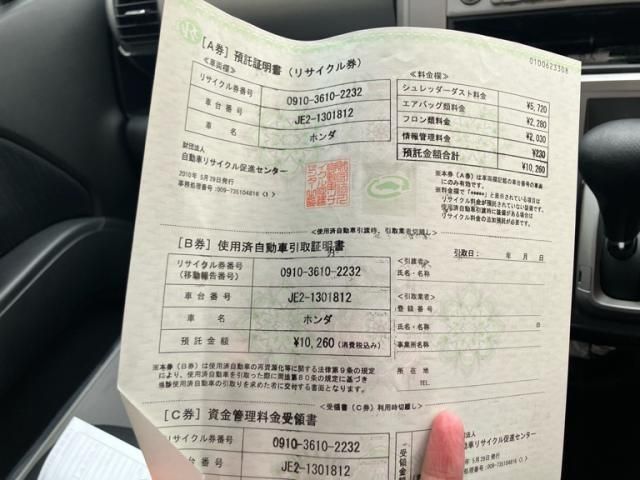 0100623308
[A券] 預託証明書(リサイクル券)
≪車両欄≫
リサイクル券番号 0910-3610-2232
車台番号 JE2-1301812
車名 ホンダ
財団法人
自動車リサイクル促進センター
2010年 5月29日発行
事務処理番号:009-735104816 〈1〉
≪料金欄≫
シュレッダーダスト料金 ¥5,720
エアバッグ類料金 ¥2,280
フロン類料金 ¥2,030
情報管理料金 ¥230
預託金額合計 ¥10,260
※本券(A券)は車両欄記載の車台番号の車両
にのみ有効です。
※料金欄で「*****」と表示されている項目は
リサイクル料金が預託されていない装備です。
使用済自動車引渡時に装備がある場合は
リサイクル料金の追加預託が必要です。
<使用済自動車引渡時、引取業者切離し>
[B券] 使用済自動車引取証明書
引取日: 年 月 日
リサイクル券番号
(移動報告番号) 0910-3610-2232
車台番号 JE2-1301812
車名 ホンダ
預託金額 ¥10,260 (消費税込み)
<引渡者>
氏名・名称
<引取業者>
登録番号
氏名・名称
事業所名
所在地
TEL.
※本券(B券)は使用済自動車の再資源化等に関する法律第9条の規定
により、使用済自動車を引取った際に同法第80条の規定に基づき
当該使用済自動車の引取りを求めた者に交付する書面となります。
<受領書(C券)利用時切離し>
[C券] 資金管理料金受領書
リサイクル券番号 0910-3610-2232
車台番号 JE2-1301812
受領金額
5月29日発行
009-735104816 〈1〉